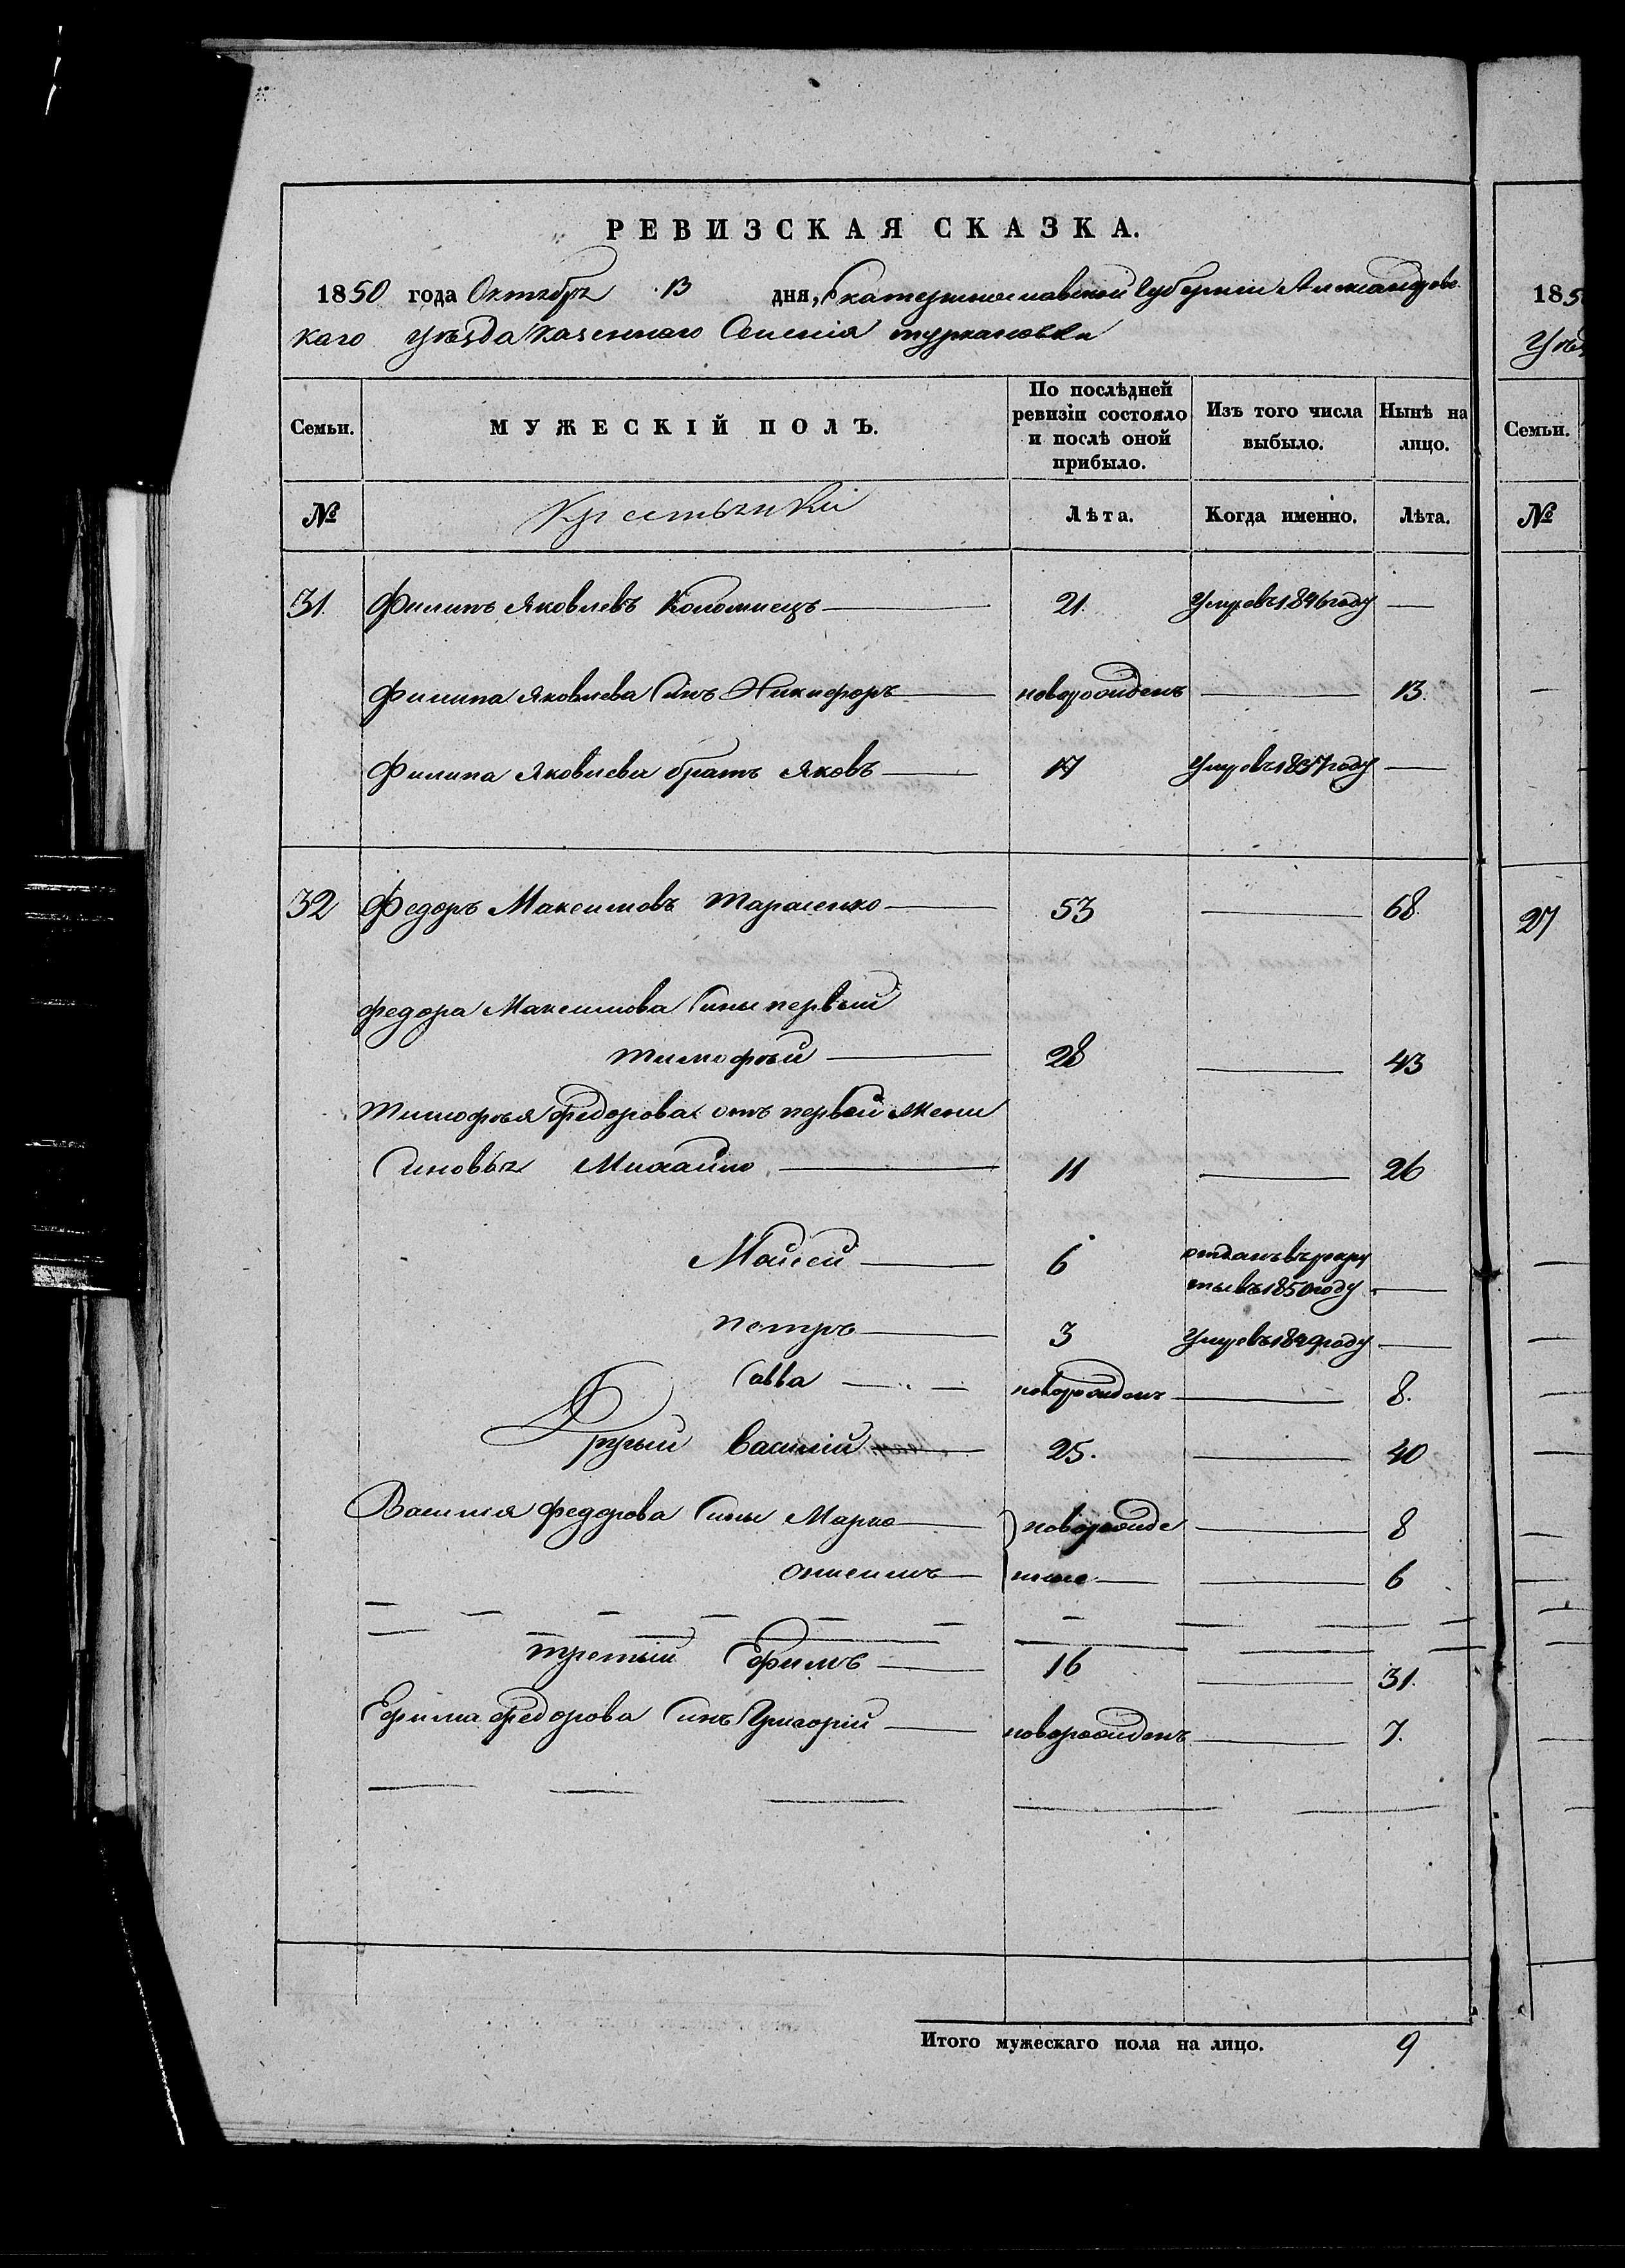 РЕВИЗСКАЯ СКАЗКА.
1850 года Октября 13 дня, Екатеринославской Губернии Александровс
каго уѣзда казенного Селенія туркановки
Семьи. МУЖЕСКІЙ ПОЛЪ. По послѣдней ревизіи состояло и послѣ оной прибыло. Изъ того числа выбыло. Нынѣ на лицо.
№ Лѣта. Когда именно. Лѣта.
31. Филипъ Яковлевъ Коломиецъ — 21. Умер въ 1846 году —
Филипа Яковлева Синъ Никифоръ — новорожденъ — 13.
Филипа Яковлева братъ Яковъ — 17 Умер въ 1837 году —
32 Федоръ Максимовъ Тарасенко — 53 — 68.
Федора Максимова Сины первый
Тимофѣй — 28 — 43
Тимофѣя Федорова отъ первой жени
Синовья Михайло — 11 — 26
Мойсей — 6 отданъ въ рекру
ты въ 1850 году —
Петръ — 3 Умер въ 1849 году —
Савва — новорожденъ — 8.
Другий Василій — 25. — 40
Василия Федорова Сины Марко — новорожде — 8
Онисимъ — нные — — 6
третий Ефимъ — 16 — 31.
Ефима Федорова Синъ Григорій — новорожденъ — 7.
Итого мужескаго пола на лицо. 9
185
Уѣз
Семьи.
№
27